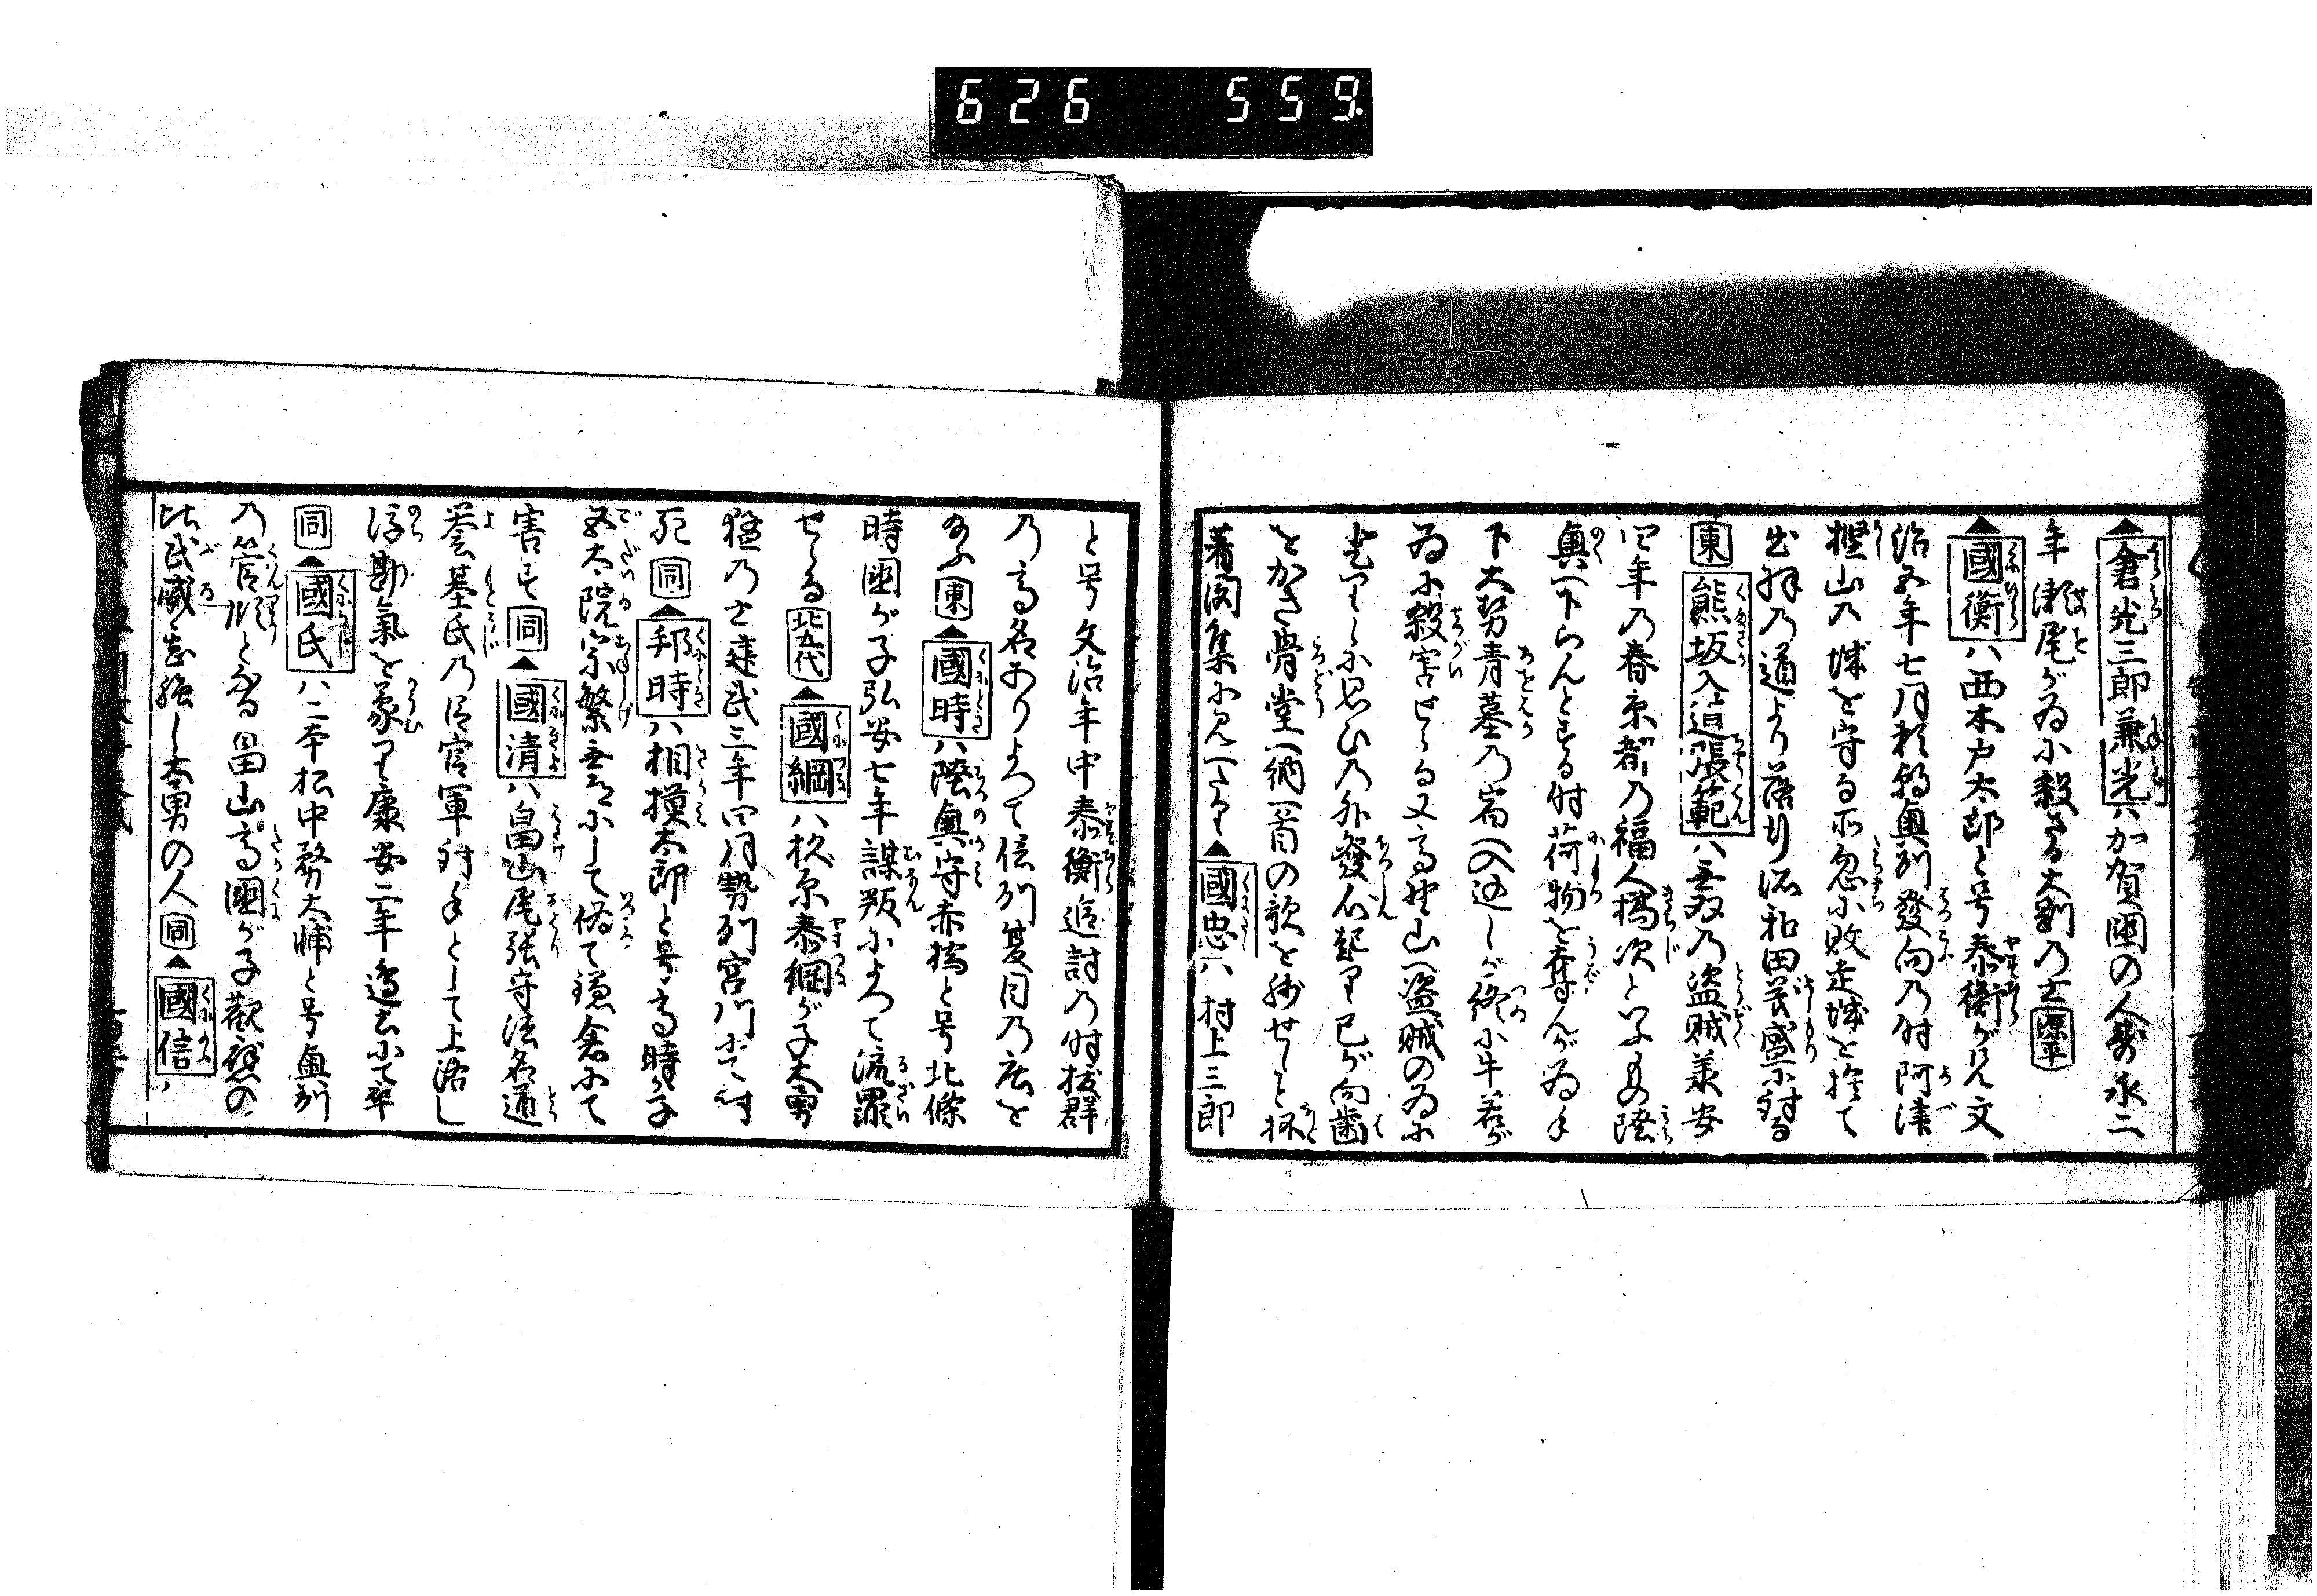 626 559
倉光三郎兼光ハ加賀国の人寿永二
年瀬尾がゐに殺さる大剛の士源平
國衡ハ西木戸太郎と号泰衡が兄文
治五年七月頼朝奥州發向の時阿津
樫山の城を守る所忽に敗走城を捨て
出羽の道より落行砌和田義盛に討る
東 熊坂入道張範ハ無双の盗賊承安
四年の春京都の福人橘次といふもの陸
奥へ下らんとする時荷物を奪んがゐ手
下大勢青墓の宿へ入込しが終に牛若が
ゐに殺害せらる又高野山へ盗賊のゐに
登りしに思ひの外發心起りて已が向歯
をかき骨堂へ納一首の歌を残せしと
著聞集に見へたり 國忠ハ村上三郎
と号文治年中泰衡追討の時抜群
の高名ありよつて信州夏目の庄を
給ふ 東 國時ハ陸奥守赤橋と号北條
時国が子弘安七年謀叛によつて流罪
せらる 北九代 國綱ハ杉原泰綱が子大勇
強の士建武三年四月勢州宮川にて討
死 同 邦時ハ相摸太郎と号高時が子
五大院宗繁無道にして偽て鎌倉にて
害す 同 國清ハ畠山尾張守法名道
誉基氏の時官軍討手として上洛し
後勘氣を蒙りて康安二年逝去にて卒
同 國氏ハ二本松中務大輔と号奥州
の管領となる畠山高国が子観應の
比武威盛強し大勇の人 同 國信ハ